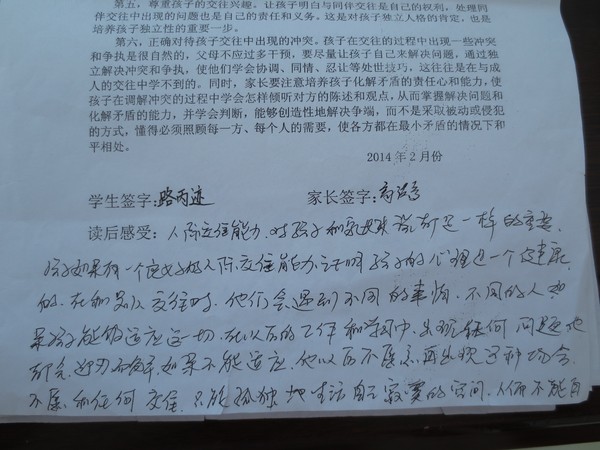 第五，尊重孩子的交往兴趣，让孩子明白与同伴交往是自己的权利，处理同
伴交往中出现的问题也是自己的责任和义务。这是对孩子独立人格的肯定，也是
培养孩子独立性的重要一步。
第六，正确对待孩子交往中出现的冲突。孩子在交往的过程中出现一些冲突
和争执是很自然的，父母不应过多干预，要尽量让孩子自己来解决问题，通过独
立解决冲突和争执，使他们学会协调、同情、忍让等处世技巧，这往往是在与成
人的交往中学不到的。同时，家长要注意培养孩子化解矛盾的责任心和能力，使
孩子在调解冲突的过程中学会怎样倾听对方的陈述和观点，从而掌握解决问题和
化解矛盾的能力，并学会判断，能够创造性地解决争端，而不是采取被动或侵犯
的方式，懂得必须照顾每一方、每个人的需要，使各方都在最小矛盾的情况下和
平相处。
2014年2月份
学生签字：路丙迹 家长签字：
读后感受：人际交往能力，对孩子和家长来说都是一样的重要，
孩子如果有一个良好的人际交往能力证明孩子的心理是一个健康
的，在和别人交往时，他们会遇到不同的事情，不同的人，如
果孩子能够适应这一切，在以后的工作和学习中，出现任何问题他
都会迎刃而解，如果不能适应，他以后不愿意再出现这种场合，
不愿和任何交往，只能孤独地生活自己寂寞的空间，从而不能自